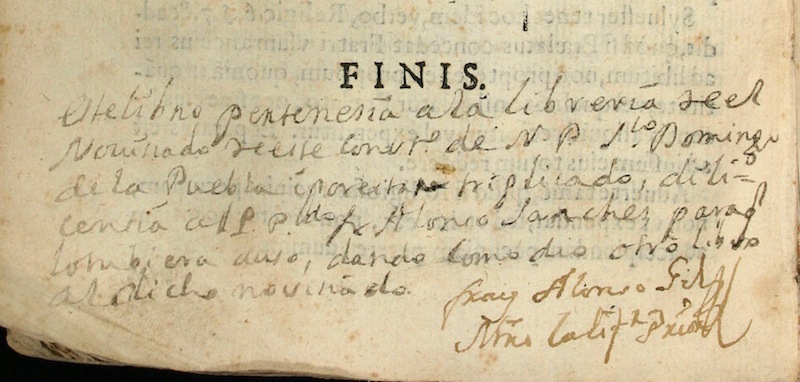 FINIS.
este libro pertenesia a la libreria de el
Novisiado de este Convto de N P Sto Domingo
de la Puebla i por estar triplicado, di li=
centia al P. Pdo fr Alonso Sanchez para q
lo tubiera a uso, dando como dio otro libro
al dicho novisiado.
fray Alonso Gil
Mro